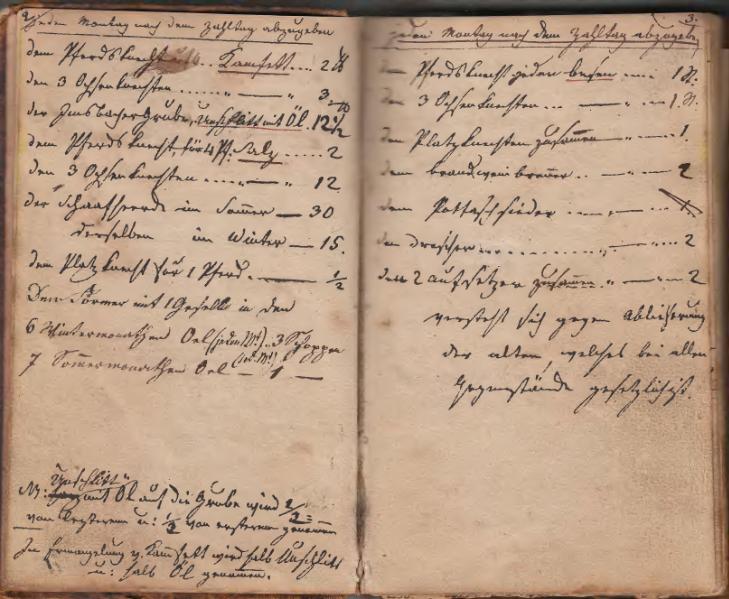 2.
Jeden Montag nach dem Zahltag abzugeben
dem Pferdsknecht Kamfett .... 2 ℔
den 3 Ochsenknechten ...... — " 3
der Grube, Unschlitt mit Öl . 12 1/2
dem Pferdsknecht, für 4 Pf: Salz ..... 2
den 3 Ochsenknechten ..... — " 12.
der Schaafheerde im Sommer — 30
derselben im Winter — 15.
dem Platzknecht für 1 Pferd . — 1/2
Dem Former mit 1 Gesellen in den
6 Wintermonathen Oel (jeden Mt.) .. 3 Schoppen
7 Sommermonathen Oel — 1 —
Unschlitt
NB: mit Öl auf die Grube wird 1/2
von letzterem u: 1/2 von ersterem genommen
In Ermangelung v. Kamfett wird halb Unschlitt
u: halb Öl genommen.
3.
jeden Montag nach dem Zahltag abzugeben
dem Pferdsknecht jeden besen .... 1 St.
den 3 Ochsenknechten ... — " — 1 St.
den Platzknechten zusammen — " — 1.
dem brandweinbrenner .. — " — 2
dem Pottaschsieder .... — " —
den drescher .......... — 2
den 2 aufsetzer zusammen .. — 2
versteht sich gegen Ablieferung
der alten, welches bei allen
Gegenstände gesetzlich ist.